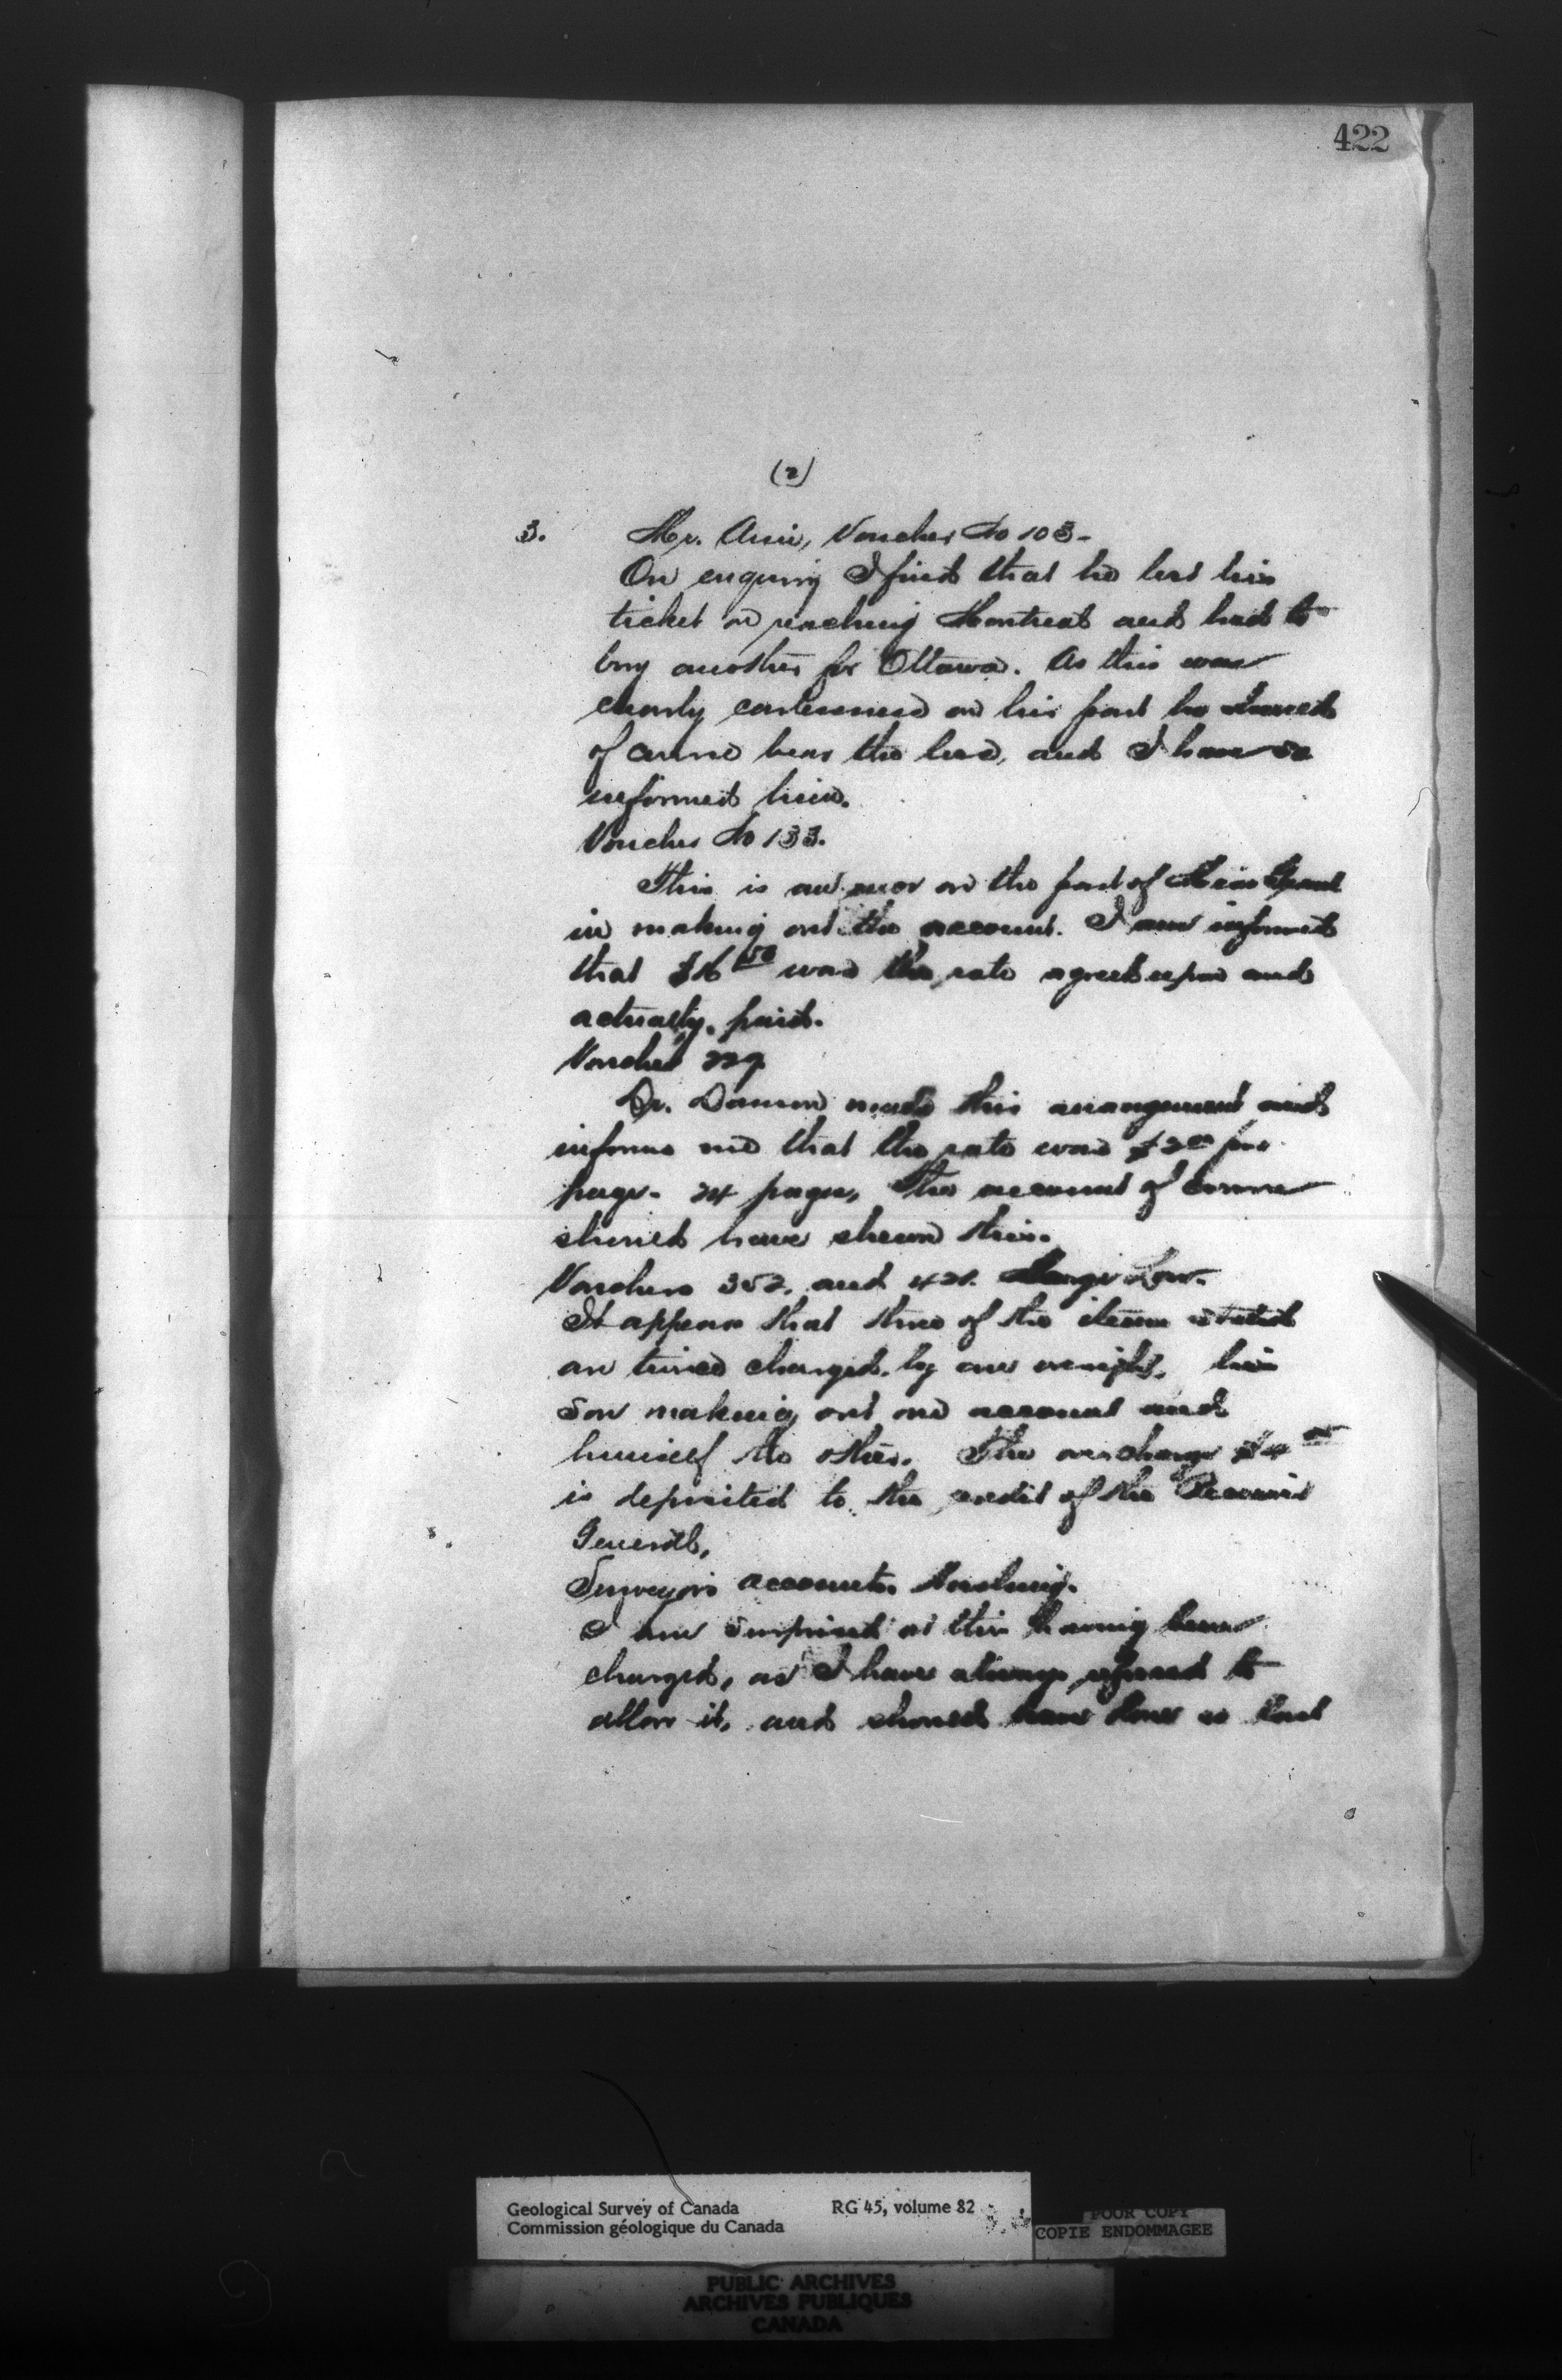 422
(2)
3. Mr. Ami, Voucher No 103-
On enquiry I find that he lost his
ticket on reaching Montreal and had to
buy another for Ottawa. As this was
clearly carelessness on his part he should
of course bear the loss, and I have so
informed him.
Voucher No 133.
This is an error on the part of
in making out the account. I am informed
that $16 50 was the rate agreed upon and
actually paid.
Voucher 229
Dr. Dawson made this arrangement and
informs me that the rate was $2 00 per
page - 24 pages, The account of course
should have shewn this.
Vouchers 352, and 421. Low.
It appears that three of the items stated
are twice charged by an oversight, his
son making out one account and
himself the other. The overcharge $4 00
is deposited to the credit of the Receiver
General,
Surveyor's accounts. Washing.
I am surprised at this having been
charged, as I have always refused to
allow it, and should have done so had
Geological Survey of Canada RG 45, volume 82
Commission géologique du Canada
POOR COPY
COPIE ENDOMMAGEE
PUBLIC ARCHIVES
ARCHIVES PUBLIQUES
CANADA